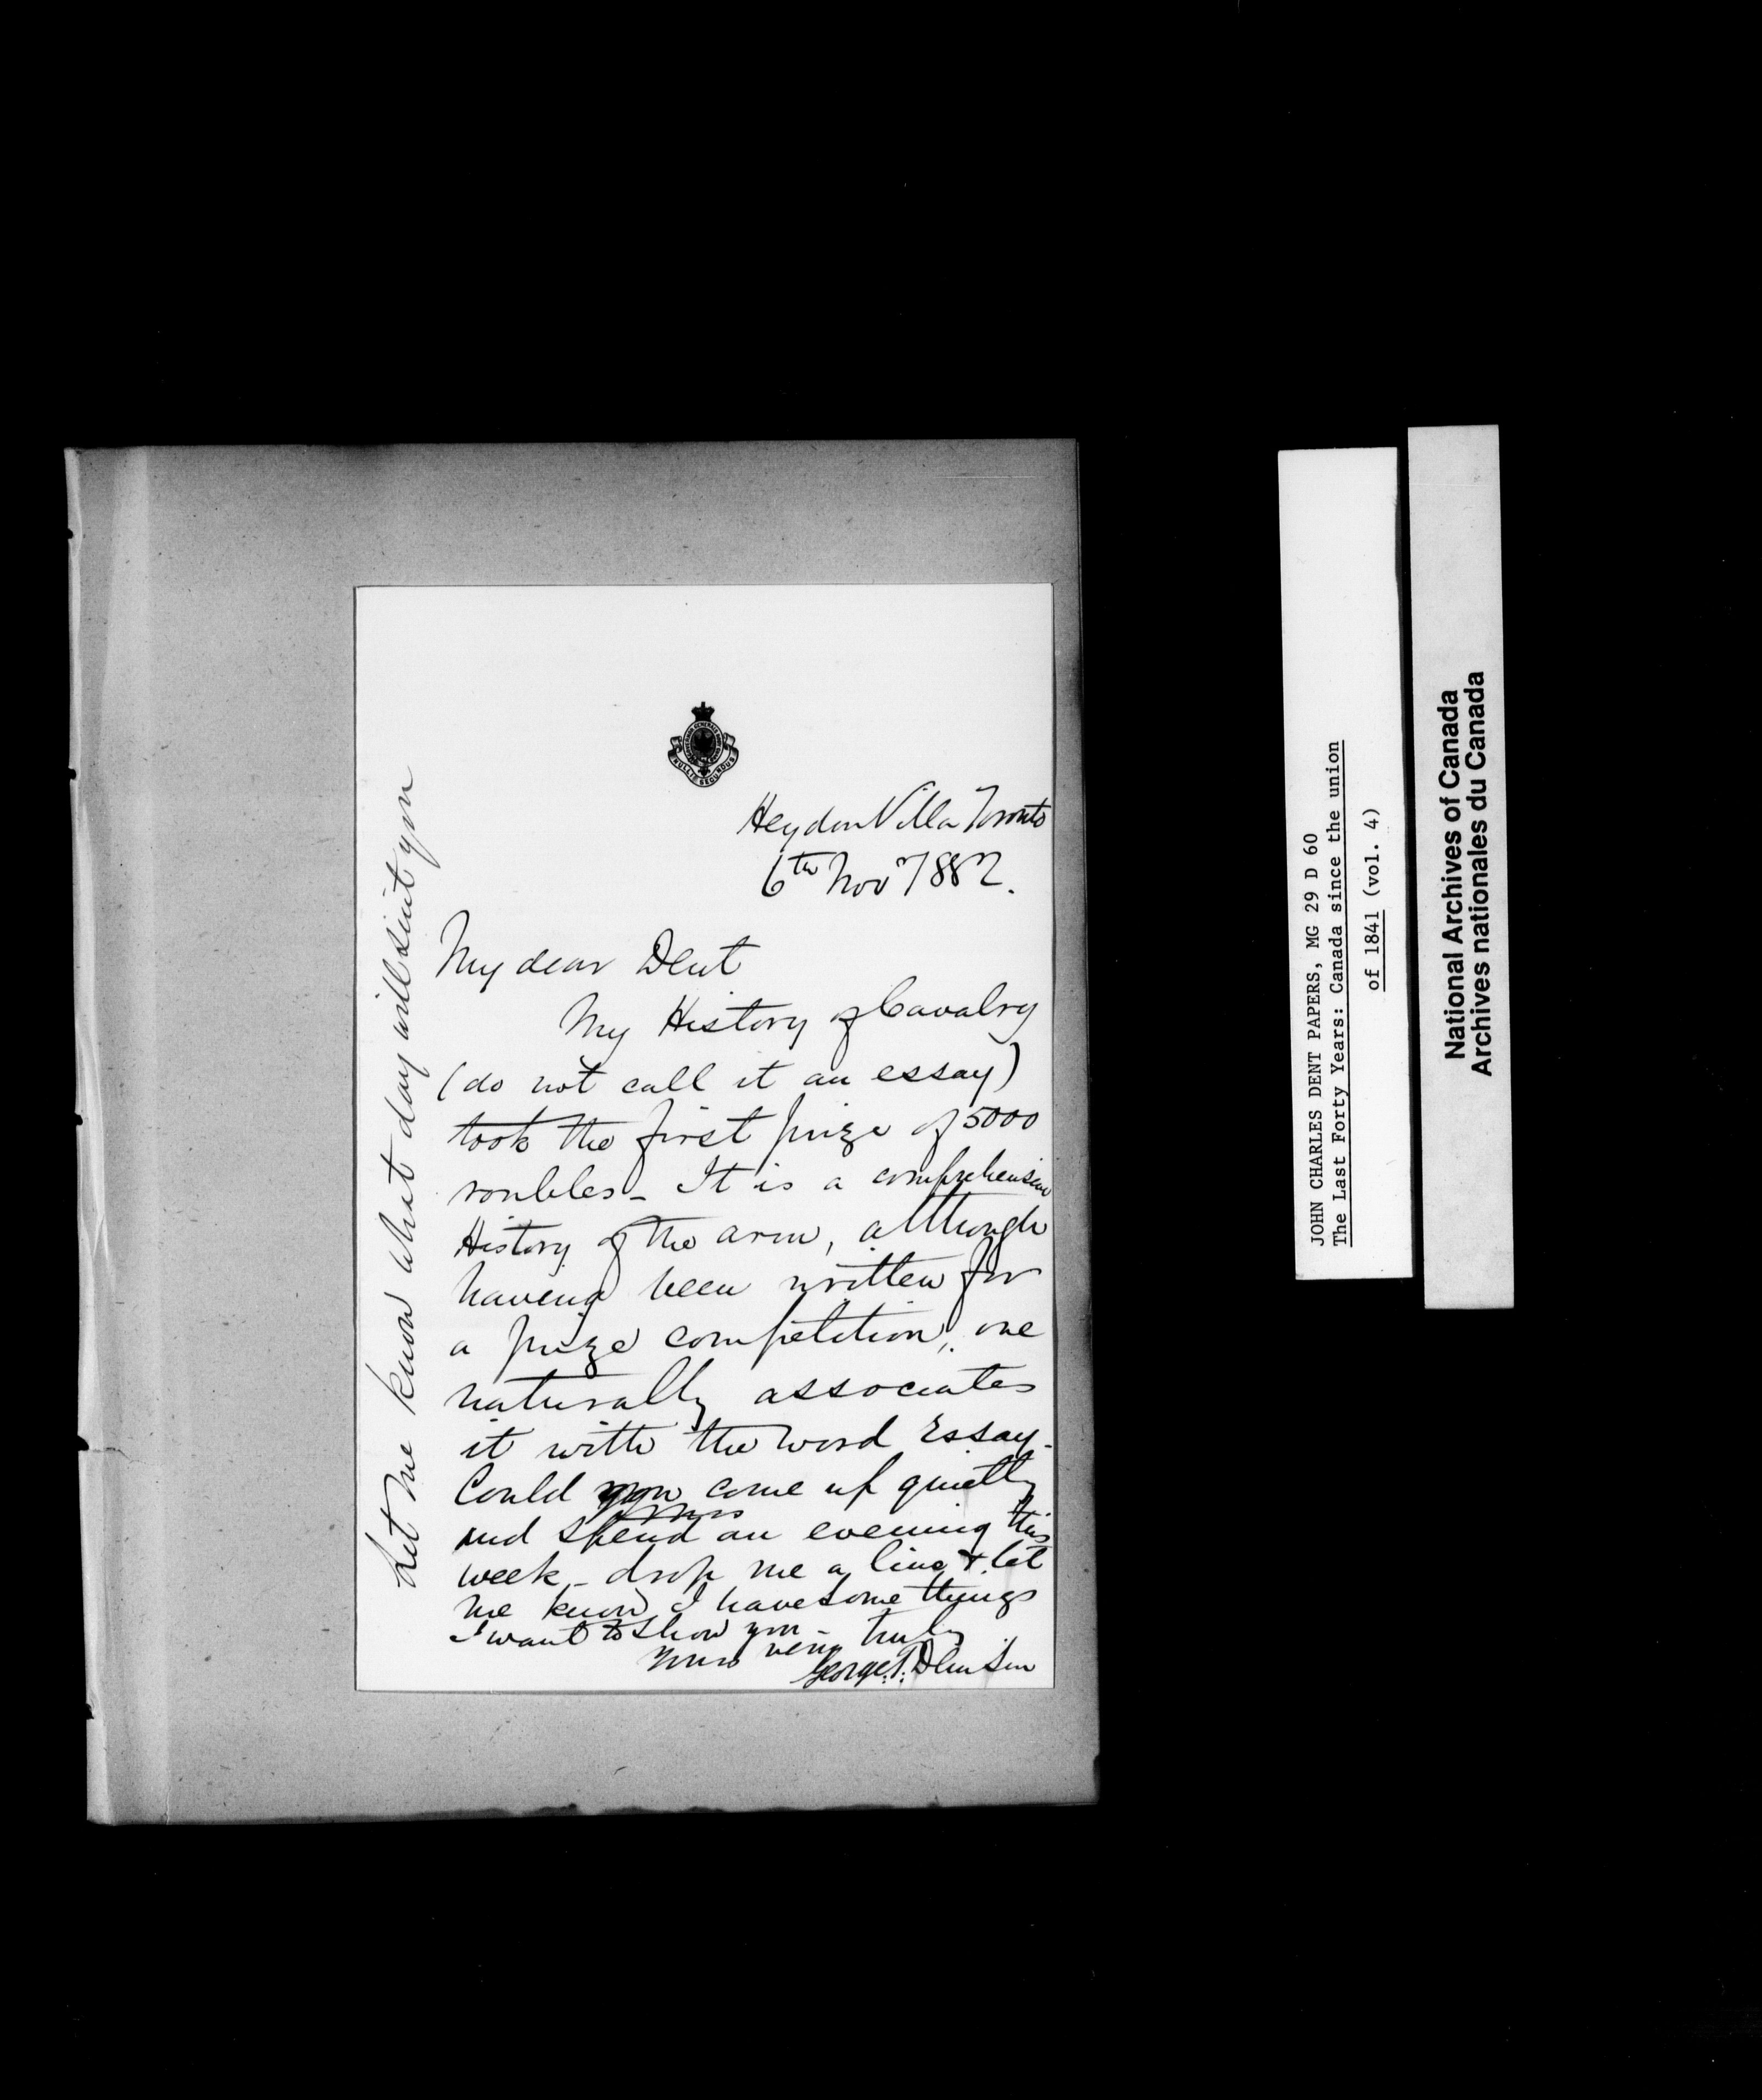 NULLI SECUNDUS
Heydon Villa Toronto
6th Nov 1882.
My dear Dent
My History of Cavalry
(do not call it an essay)
took the first prize of 5000
roubles - It is a comprehensive
History of the arm, although
having been written for
a prize competition, one
naturally associates
it with the word Essay -
Could you come up quietly
and spend an evening this
week - drop me a line & let
me know I have some things
I want to show you -
Yours very truly
George T. Denison
Let me know what day will suit you
JOHN CHARLES DENT PAPERS, MG 29 D 60
The Last Forty Years: Canada since the union
of 1841 (vol. 4)
National Archives of Canada
Archives nationales du Canada